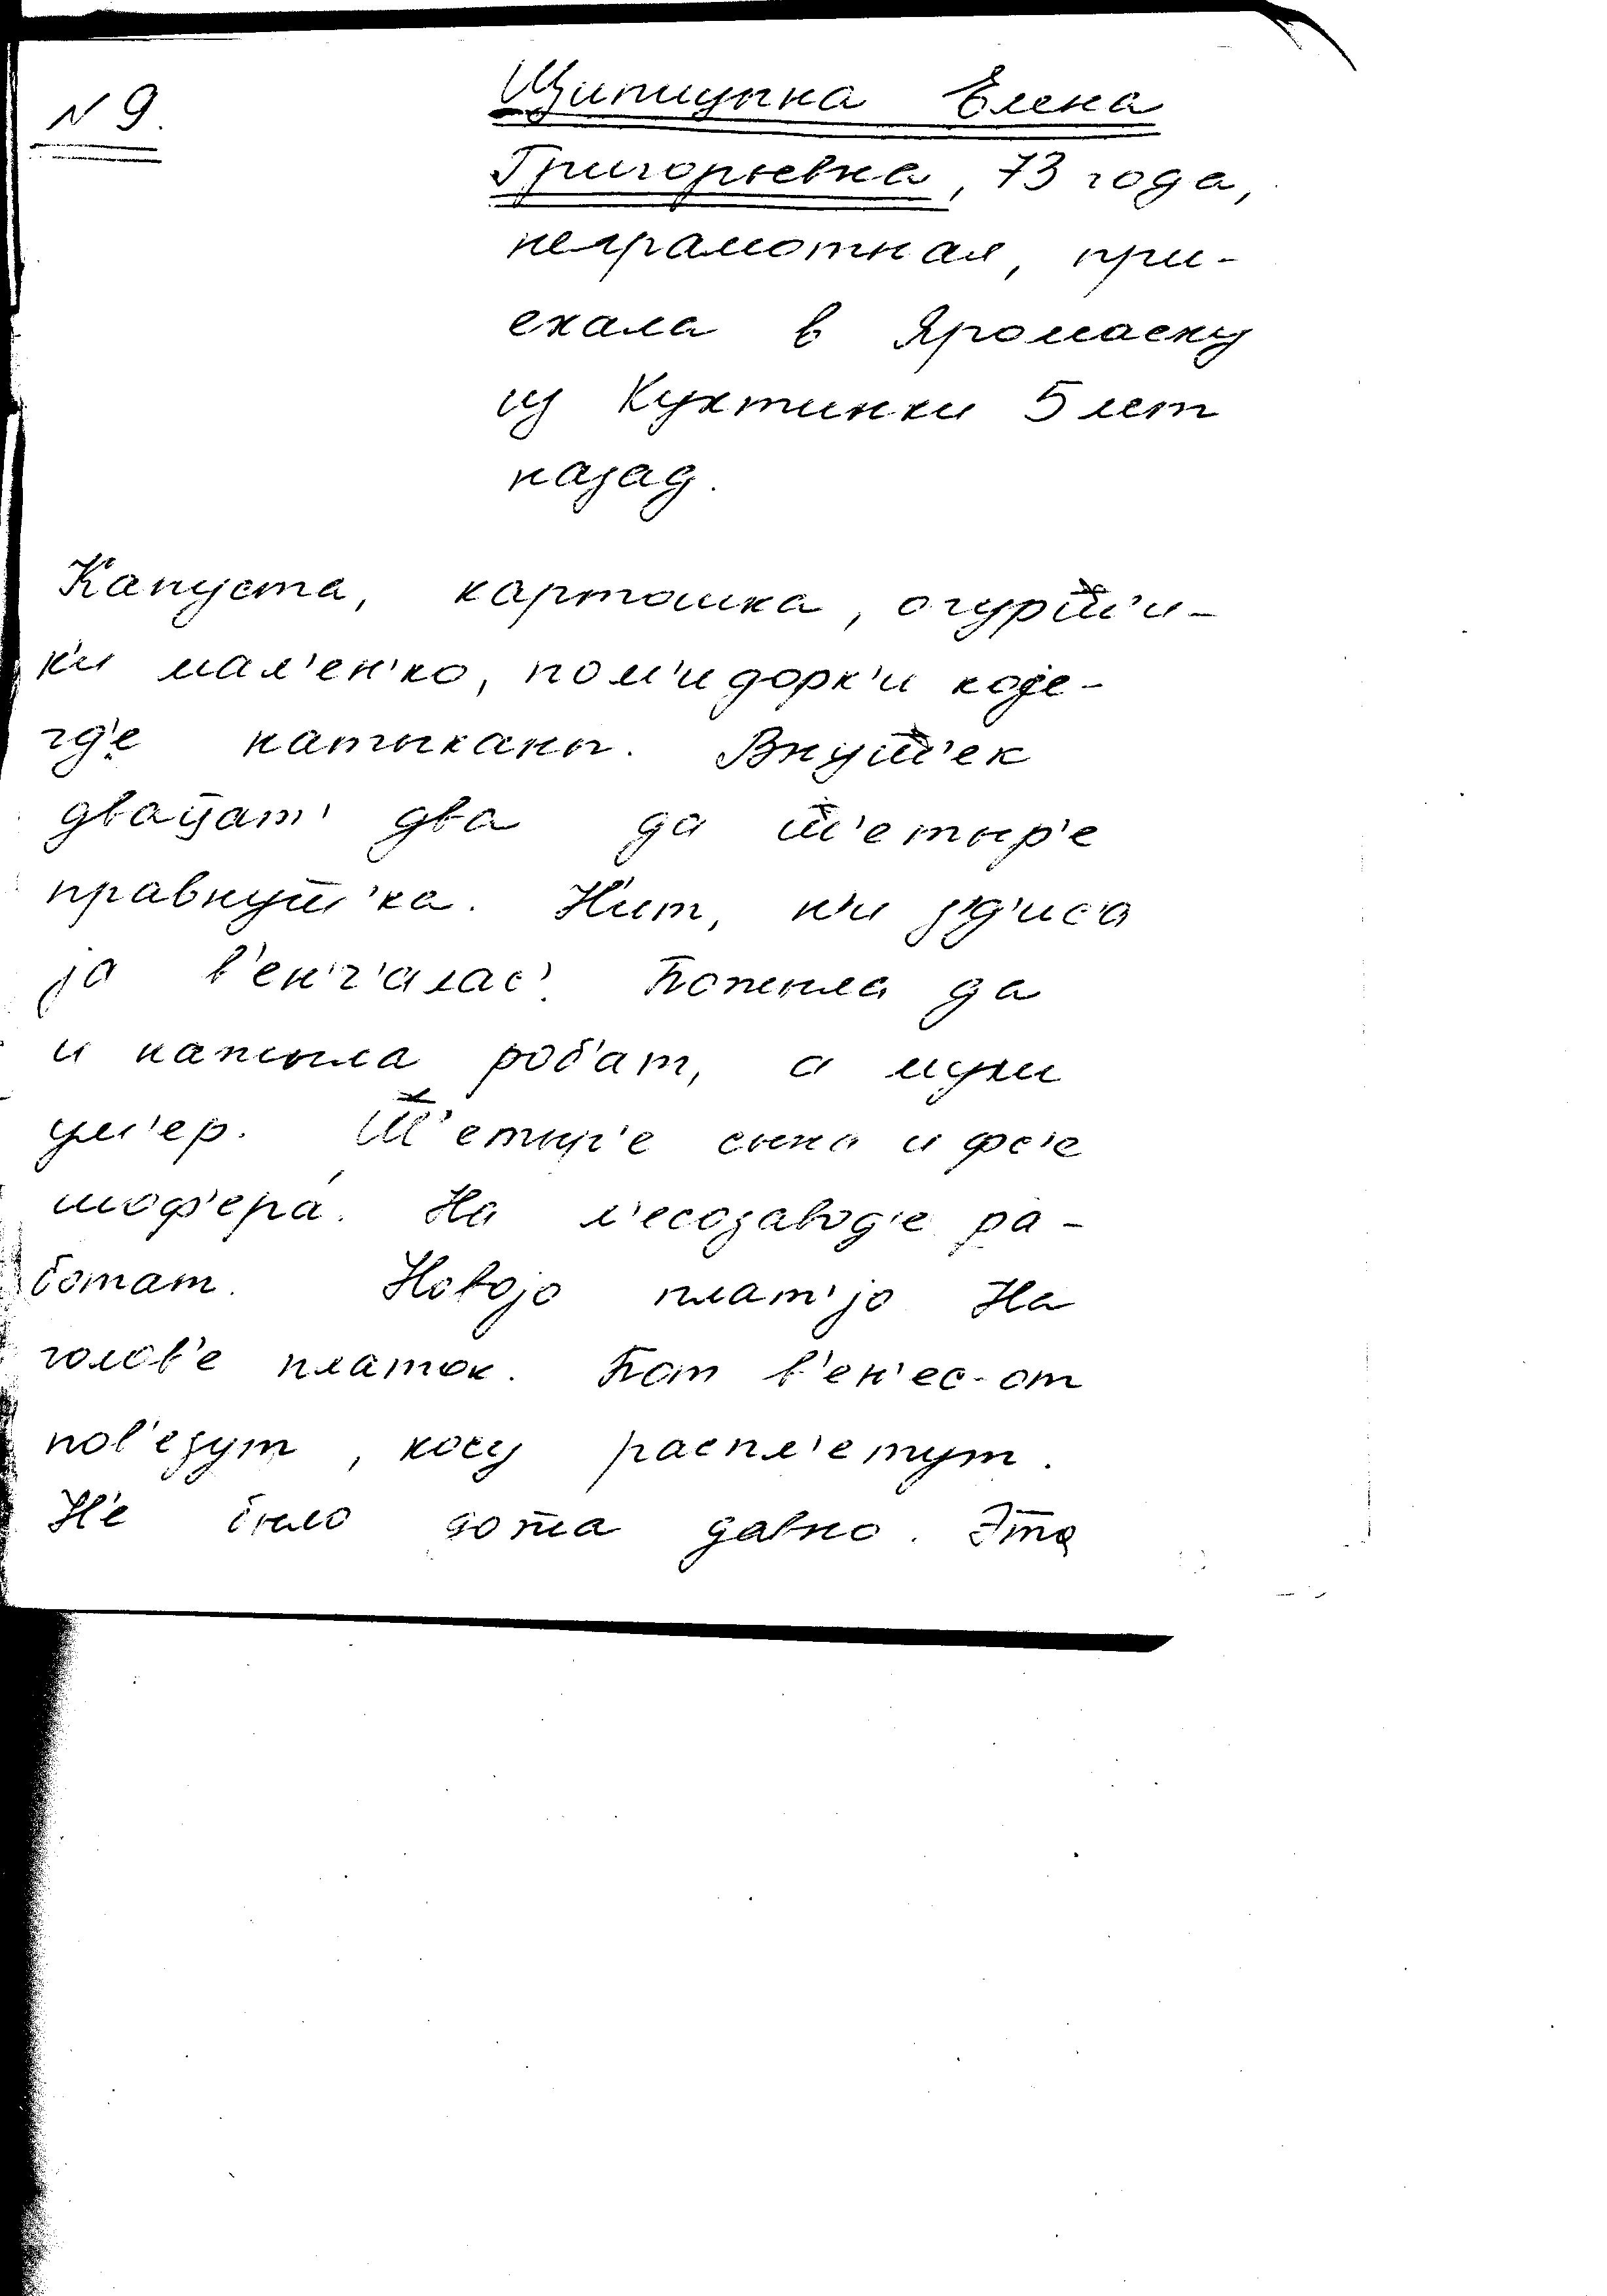 N 9.
Щипицына Елена
Григорьевна, 73 года,
неграмотная, при-
ехала в Яромаску
из Кухтинки 5 лет
назад.
Капуста, картошка, огурш'и-
к'и мал'ен'ко, пом'идорк'и које-
гд'е натыканы. Внуш'ек
двацат' два да ш'етыр'е
правнуш'ка. Н'ит, н'и з'д'ис'а
ја в'ен'г'алас'. Пожыла да
и нажыла роб'ат, а мужы
ум'ер. Ш'етыр'е сына и фс'е
шоф'ера. На л'есозавод'е ра-
ботат. Новојо плат'јо На
голов'е платок. Вот в'ен'ес-от
пов'езут, косу распл'етут.
Н'е было давно. Эта